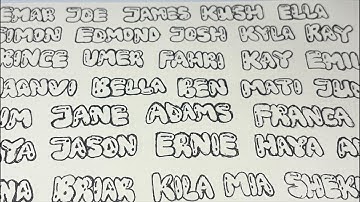 EMAR JOE JAMES KUSH ELLA
SIMON EDMOND JOSH KYLA RAY
PRINCE UMER FAHRI KAY EMIL
AANVI BELLA BEN MATI JUA
IM JANE ADAMS FRANCA
YA JASON ERNIE HAYA A
NA BRIAR KILA MIA SHEK